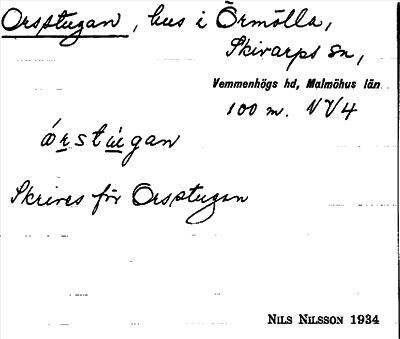 Orsptugan, hus i Örmölla,
Skivarps sn,
Vemmenhögs hd, Malmöhus län
100 m. NV4
Skrives för Orsptugan
NILS NILSSON 1934